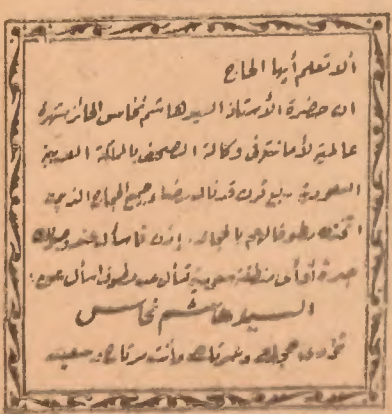 ألا تعلم أيها الحاج
ان حضرة الأستاذ السيد هاشم نحاس الحائز شهرة
عالمية لأمانته في وكالة الصحف بالمملكة العربية
السعودية ربع قرن قد نال رضاء جميع الحجاج الذين
اتخذوه مطوفا لهم بالحجاز. إذن فاسأل عند وصولك
جدة أو أى منطقة سعودية تسأل عن مطوفك اسأل عن:
السيد هاشم نحاس
تؤدى حجك وعمرتك وأنت مرتاح سعيد